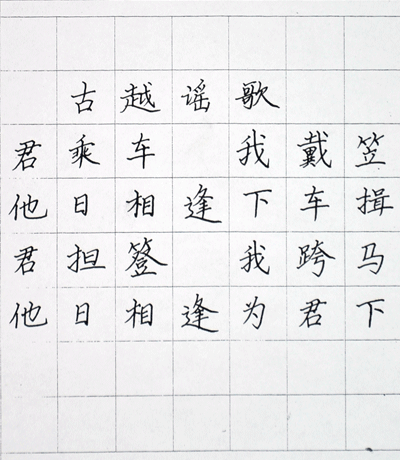 古越谣歌
君乘车 我戴笠
他日相逢下车揖
君担簦 我跨马
他日相逢为君下